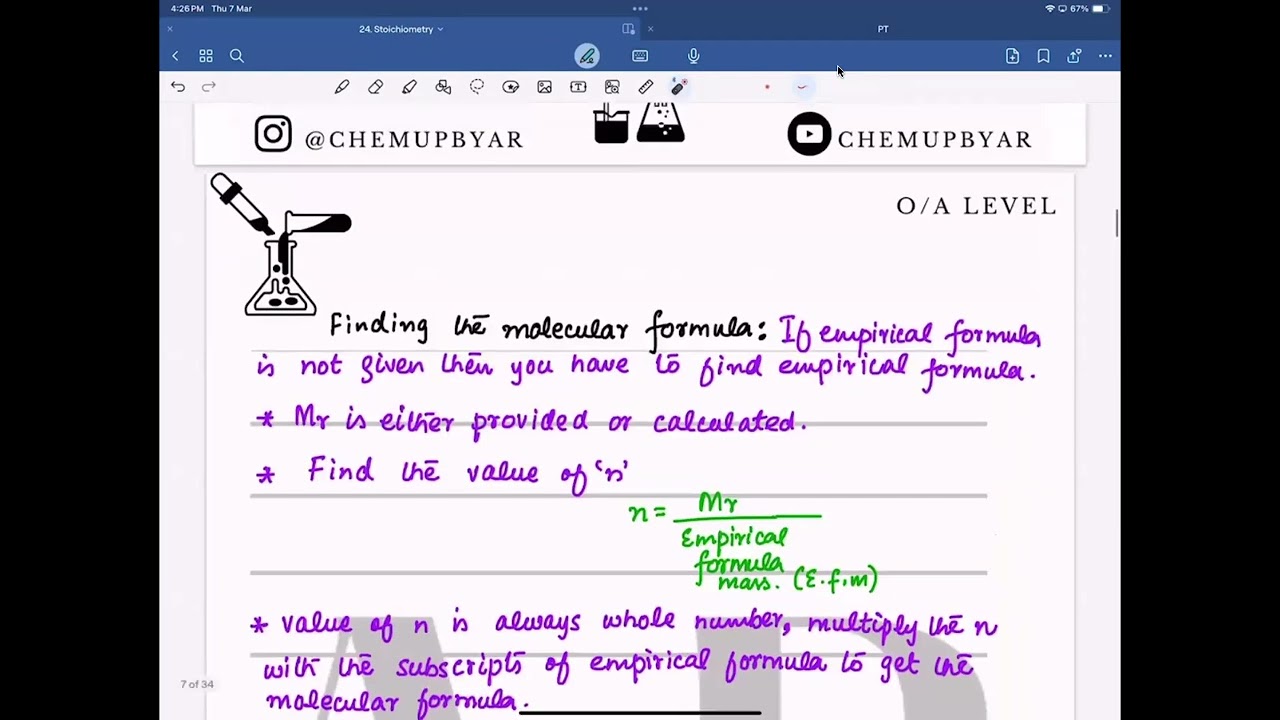 4:26 PM Thu 7 Mar
67%
24. Stoichiometry
PT
@CHEMUPBYAR
CHEMUPBYAR
O/A LEVEL
Finding the molecular formula: If empirical formula
is not given then you have to find empirical formula.
* Mr is either provided or calculated.
* Find the value of 'n'
n = Mr
Empirical
formula
mass. (E.f.m)
* value of n is always whole number, multiply the n
with the subscripts of empirical formula to get the
molecular formula.
7 of 34